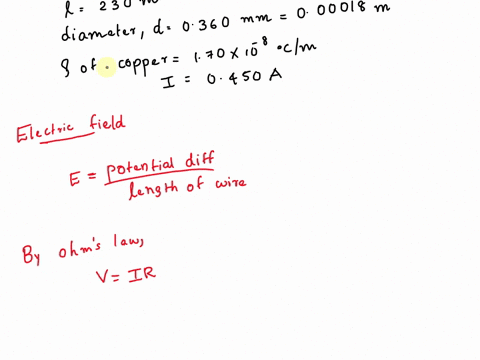 l = 230 m
diameter, d = 0.360 mm = 0.00018 m
ρ of copper = 1.70 × 10⁻⁸ °c/m
I = 0.450 A
Electric field
E = potential diff / length of wire
By ohm's law,
V = IR